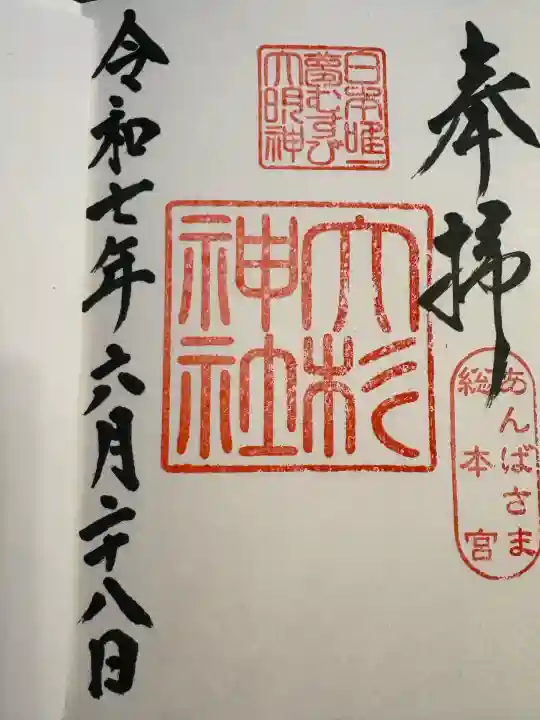 奉拝
あんばさま
総本宮
日本唯一
夢むすび
大明神
大杉
神社
令和七年六月二十八日